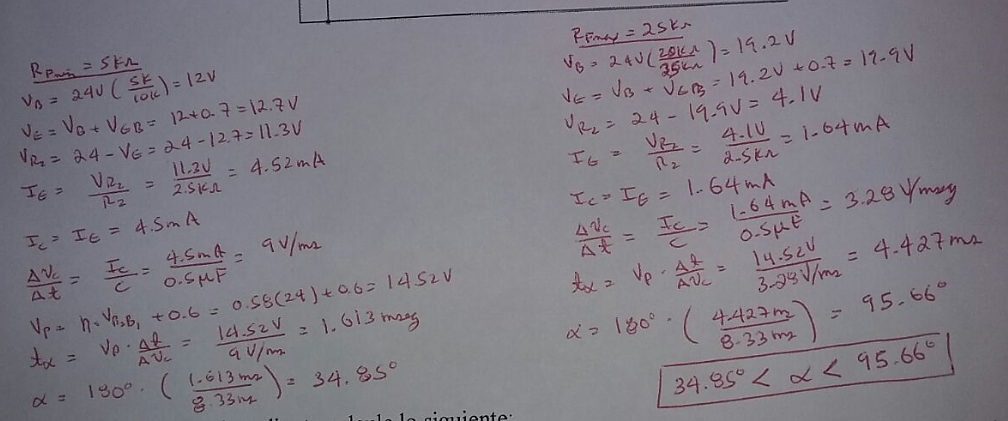 R_Pmin = 5kΩ
V_B = 24V (5k/10k) = 12V
V_E = V_B + V_EB = 12+0.7 = 12.7V
V_R2 = 24 - V_E = 24 - 12.7 = 11.3V
I_E = V_R2/R_2 = 11.3V/2.5kΩ = 4.52mA
I_C = I_E = 4.5mA
ΔV_C/Δt = I_C/C = 4.5mA/0.5μF = 9V/ms
V_P = η·V_B2B1 + 0.6 = 0.58(24) + 0.6 = 14.52V
t_α = V_P · Δt/ΔV_C = 14.52V/9V/ms = 1.613mseg
α = 180° · (1.613ms/8.33ms) = 34.85°
R_Pmax = 25kΩ
V_B = 24V (20kΩ/25kΩ) = 19.2V
V_E = V_B + V_EB = 19.2V + 0.7 = 19.9V
V_R2 = 24 - 19.9V = 4.1V
I_E = V_R2/R_2 = 4.1V/2.5kΩ = 1.64mA
I_C = I_E = 1.64mA
ΔV_C/Δt = I_C/C = 1.64mA/0.5μF = 3.28V/mseg
t_α = V_P · Δt/ΔV_C = 14.52V/3.28V/ms = 4.427ms
α = 180° · (4.427ms/8.33ms) = 95.66°
34.85° < α < 95.66°
lo siguiente: